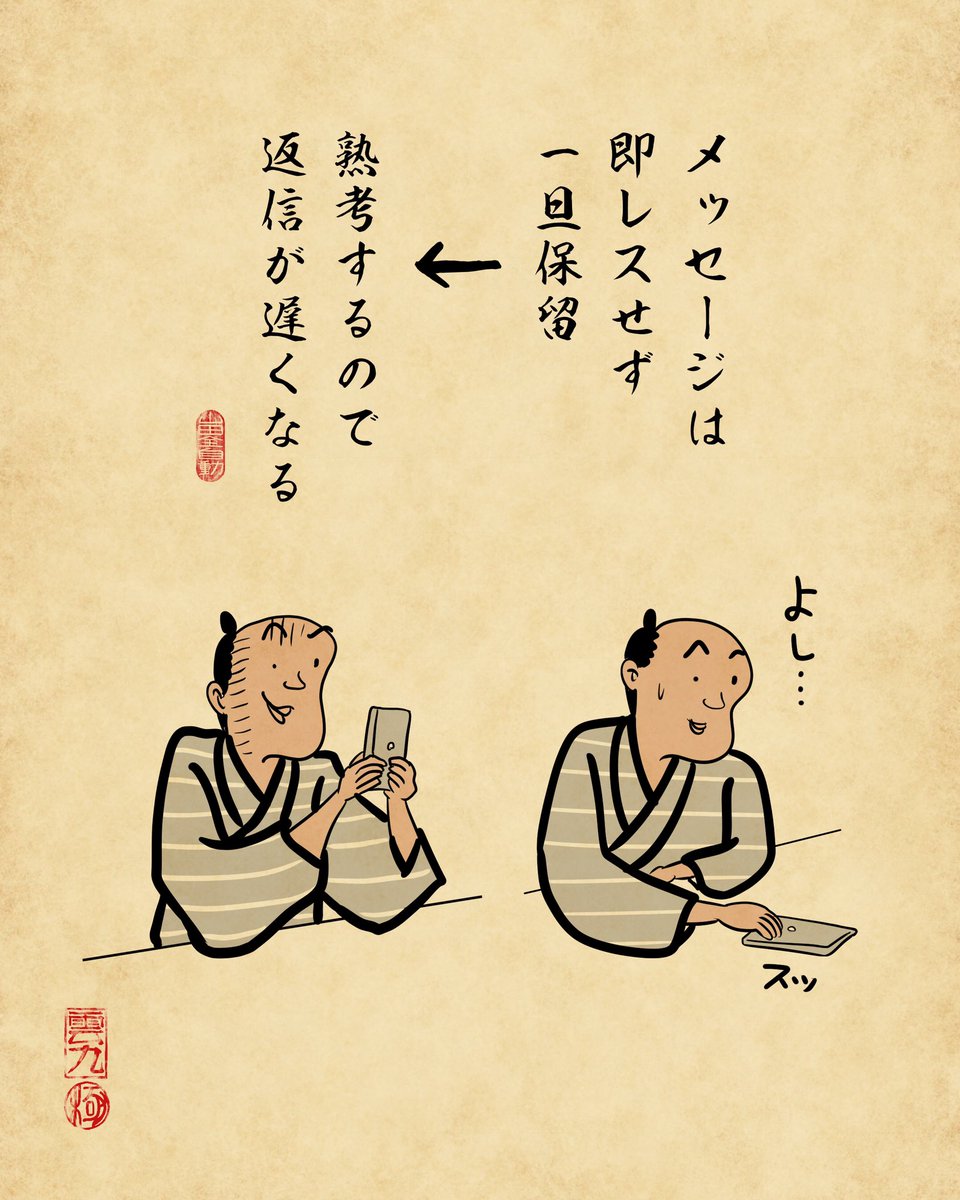 メッセージは
即レスせず
一旦保留
熟考するので
返信が遅くなる
よし…
スッ